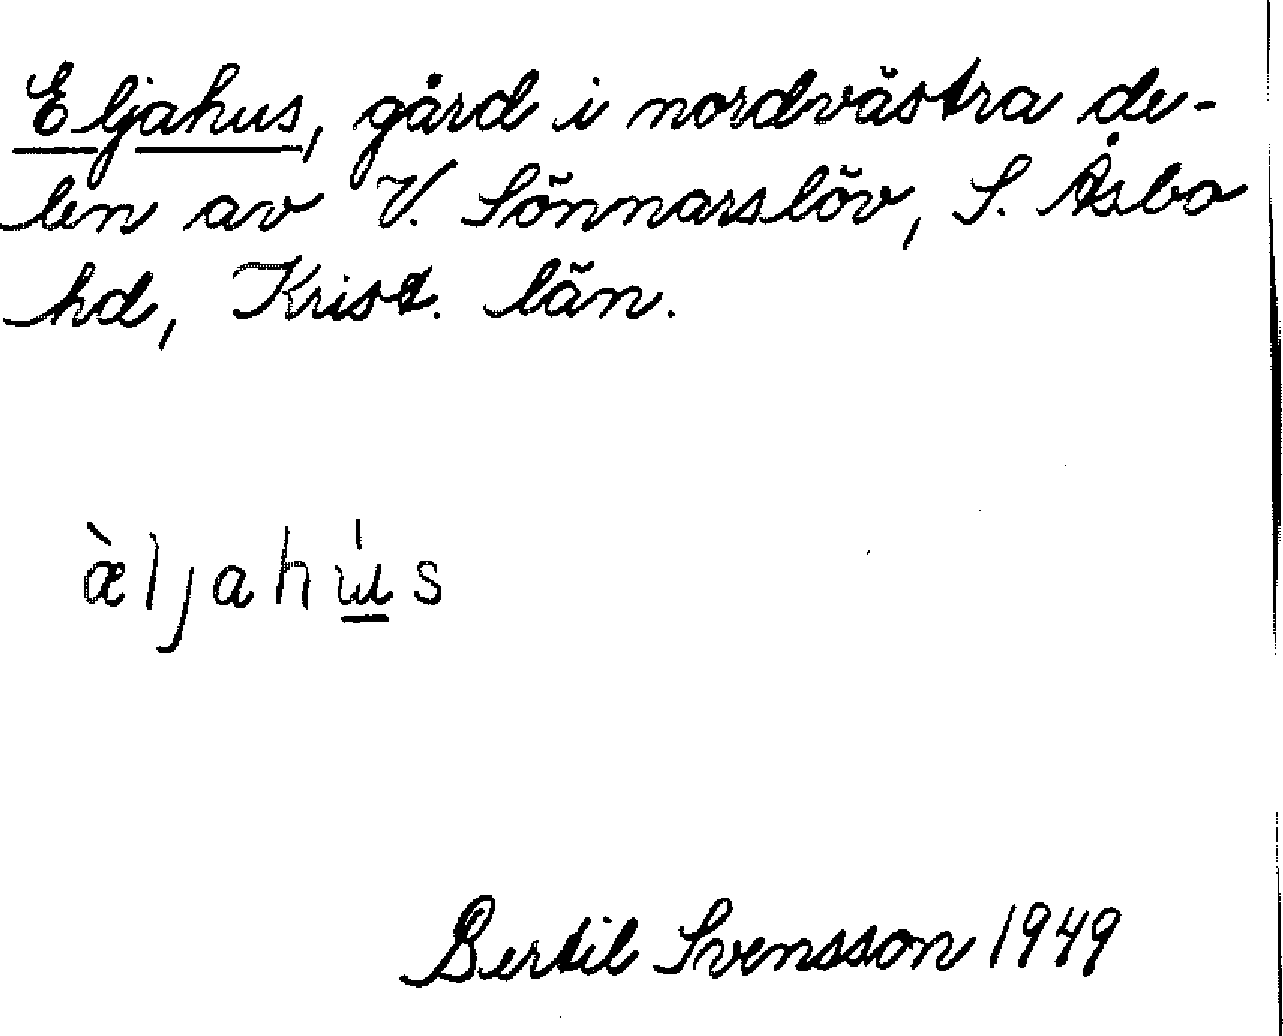 Eljahus, gård i nordvästra de-
len av V. Sönnarslöv, S. Åsbo
hd, Krist. län.
æ̀ljahɯ́s
Bertil Svensson 1949